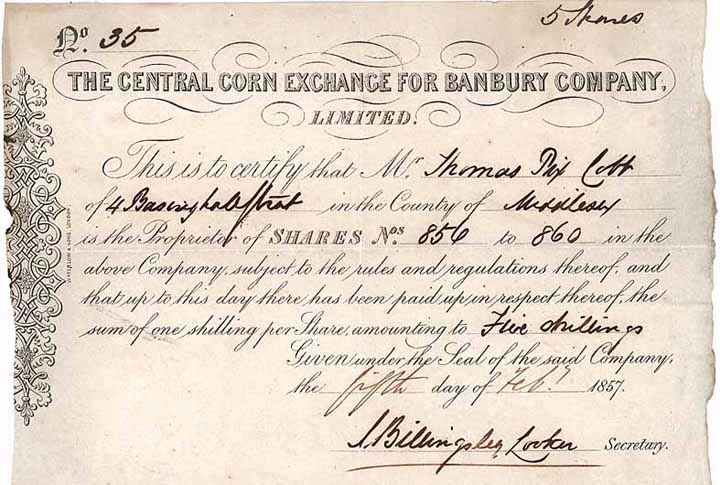 5 Shares
No. 35
THE CENTRAL CORN EXCHANGE FOR BANBURY COMPANY,
LIMITED.
This is to certify that Mr. Thomas Pix Cobb
of 4 Basinghall Street in the County of Middlesex
is the Proprietor of SHARES Nos. 856 to 860 in the
above Company, subject to the rules and regulations thereof, and
that up to this day there has been paid up in respect thereof, the
sum of one shilling per Share, amounting to Five shillings
Given under the Seal of the said Company,
the fifth day of Feby 1857.
Billingsley Looker Secretary.